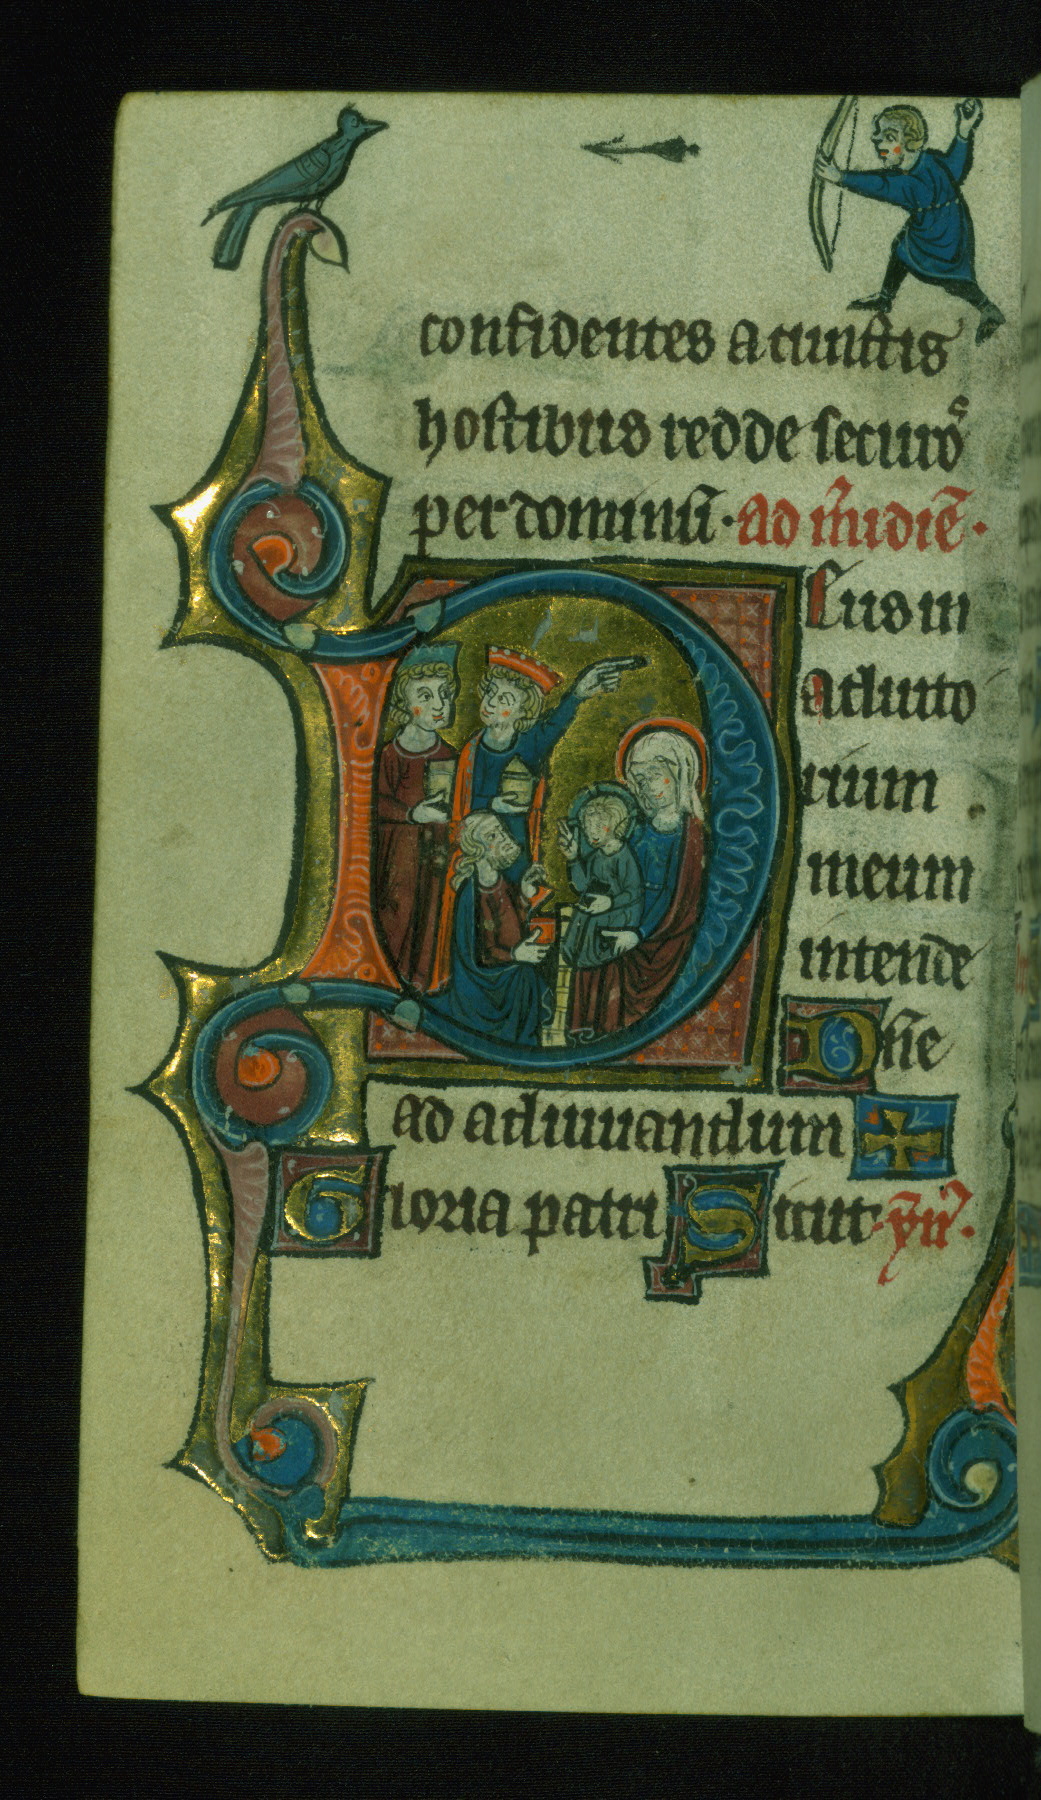 confidentes a cunctis
hostibus redde securoꝰ
per dominū · ad m̄idiē ·
Deus in
adiuto
rium
meum
intende
Dn̄e
ad adiuuandum
Gloria patri Sicut · ẏm̄ ·